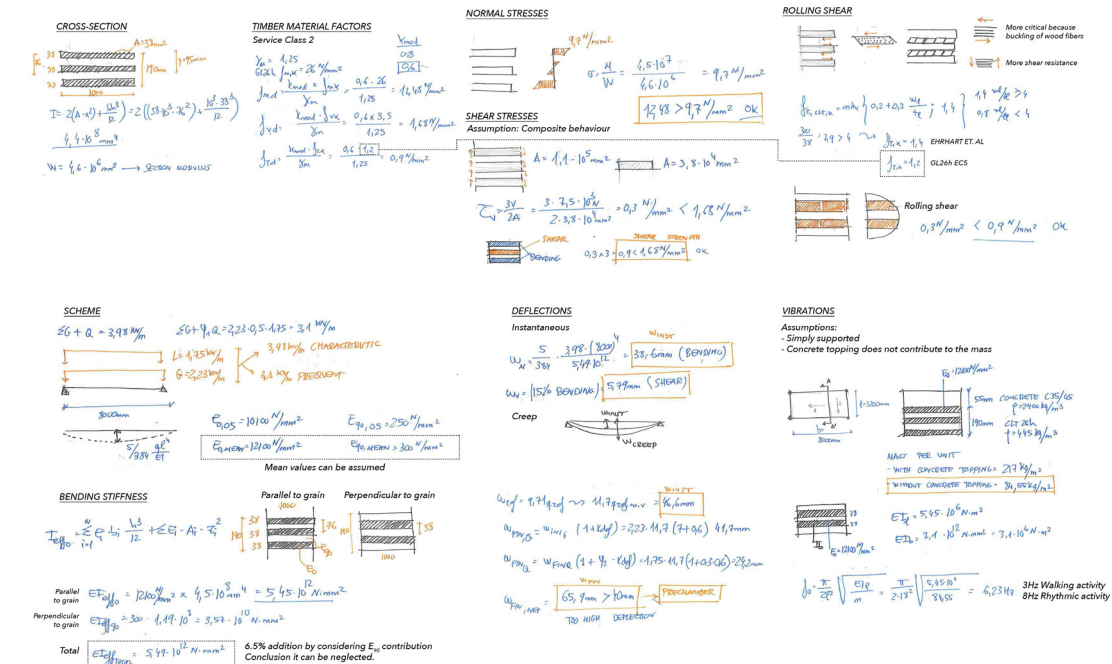 CROSS-SECTION
A=38mm²
38
76
33
33
190mm
y=95mm
1000
I=2(A·x²)+ bh³/12 = 2((38·10³·76²)+ 10³·38³/12)
4,4·10⁸ mm⁴
W=4,6·10⁶mm³ → SECTION MODULUS
TIMBER MATERIAL FACTORS
Service Class 2
γm = 1,25
GL26h fm,k = 26 N/mm²
kmod
0,8
0,6
fm,d = kmod × fmk / γm = 0,6 · 26 / 1,25 = 12,48 N/mm²
fv,d = kmod · fvk / γm = 0,6 × 3,5 / 1,25 = 1,68 N/mm²
fzd = kmod · fzk / γm = 0,6 1,2 / 1,25 = 0,9 N/mm²
NORMAL STRESSES
9,7 N/mm²
σ = M/W = 4,5·10⁷ / 4,6·10⁶ = 9,7 N/mm²
12,48 > 9,7 N/mm² OK
SHEAR STRESSES
Assumption: Composite behaviour
A=1,1·10⁵mm²
A=3,8·10⁴mm²
τv = 3V/2A = 3·7,5·10³N / 2·3,8·10⁴mm² = 0,3 N/mm² < 1,68 N/mm²
SHEAR
BENDING
SHEAR STRENGTH
0,3×3 = 0,9 < 1,68 N/mm² OK
ROLLING SHEAR
More critical because
buckling of wood fibers
More shear resistance
fz,CLT,k = min { 0,2+0,3 wl/tl ; 1,4 }
1,4 wl/tl ≥ 4
0,8 wl/tl < 4
300/38 = 7,9 > 4
fz,k = 1,4
EHRHART ET. AL
fz,k = 1,2
GL26h EC5
Rolling shear
0,3 N/mm² < 0,9 N/mm² OK
SCHEME
ΣG + Q = 3,98 kN/m
ΣG+ψ1Q=2,23·0,5·1,75=3,1 kN/m
L=1,75 kN/m
G=2,23 kN/m
3,98 kN/m CHARACTERISTIC
3,1 kN/m FREQUENT
8000mm
5/384 ql⁴/EI
E0,05=10100 N/mm²
E90,05=250 N/mm²
E0,MEAN=12100 N/mm²
E90,MEAN=300 N/mm²
Mean values can be assumed
BENDING STIFFNESS
Parallel to grain
Perpendicular to grain
1000
190
38
38
38
76
E90
E0
190
38
1000
Parallel
to grain
EIeff0 = 12100 N/mm² × 4,5·10⁸mm⁴ = 5,45·10¹² N·mm²
Perpendicular
to grain
EIeff90 = 300·1,19·10⁸ = 3,57·10¹⁰ N·mm²
Total
5,49·10¹² N·mm²
6.5% addition by considering E90 contribution
Conclusion it can be neglected.
DEFLECTIONS
Instantaneous
5/384 · 3,98·(8000)⁴ / 5,49·10¹² = 38,6mm (BENDING)
WINST
(15% BENDING) = 5,79mm (SHEAR)
Creep
WINST
WCREEP
WINST
46,6mm
(1+kdef) = 2,23·11,7(1+0,6) 41,7mm
(1+ψ2·kdef) = 1,75·11,7(1+0,3·0,6) = 24,2mm
WFIN
WFIN,NET = 65,9mm > 40mm → PRECHAMBER
TOO HIGH DEFLECTION
VIBRATIONS
Assumptions:
- Simply supported
- Concrete topping does not contribute to the mass
E0=12100 N/mm²
8000mm
55mm CONCRETE C35/45
ρ=2400kg/m³
190mm CLT 26h
ρ=445kg/m³
MASS PER UNIT
- WITH CONCRETE TOPPING = 217 kg/m²
- WITHOUT CONCRETE TOPPING = 84,55kg/m²
38
38
E0=12100 N/mm²
EIl = 5,45·10⁶ N·m²
EIb = 3,1·10¹² N·mm² = 3,1·10⁶ N·m²
f0 = π/2l² √(EIl/m) = π/2·18² √(5,45·10⁶/84,55) = 6,23Hz
3Hz Walking activity
8Hz Rhythmic activity